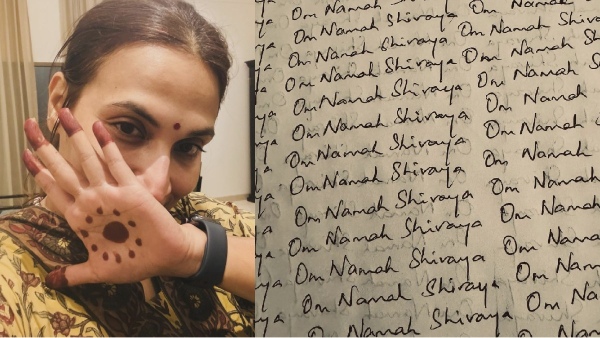 Om Namah Shivaya Om Namah
ya Om Namah Shivaya Om Namah Shiva
ya Om Namah Shivaya Om Namah Sh
ya Om Namah Shivaya Om Namah S
ya Om Namah Shivaya Om Namah
ya Om Namah Shivaya Om Namah
ya Om Namah Shivaya Om Namah
ya Om Namah Shivaya Om Namah
ya Om Namah Shivaya Om Namah
ya Om Namah Shivaya Om Nam
ya Om Namah Shivaya Om Nam
ya Om Namah Shivaya Om Na
Om Namah Shivaya